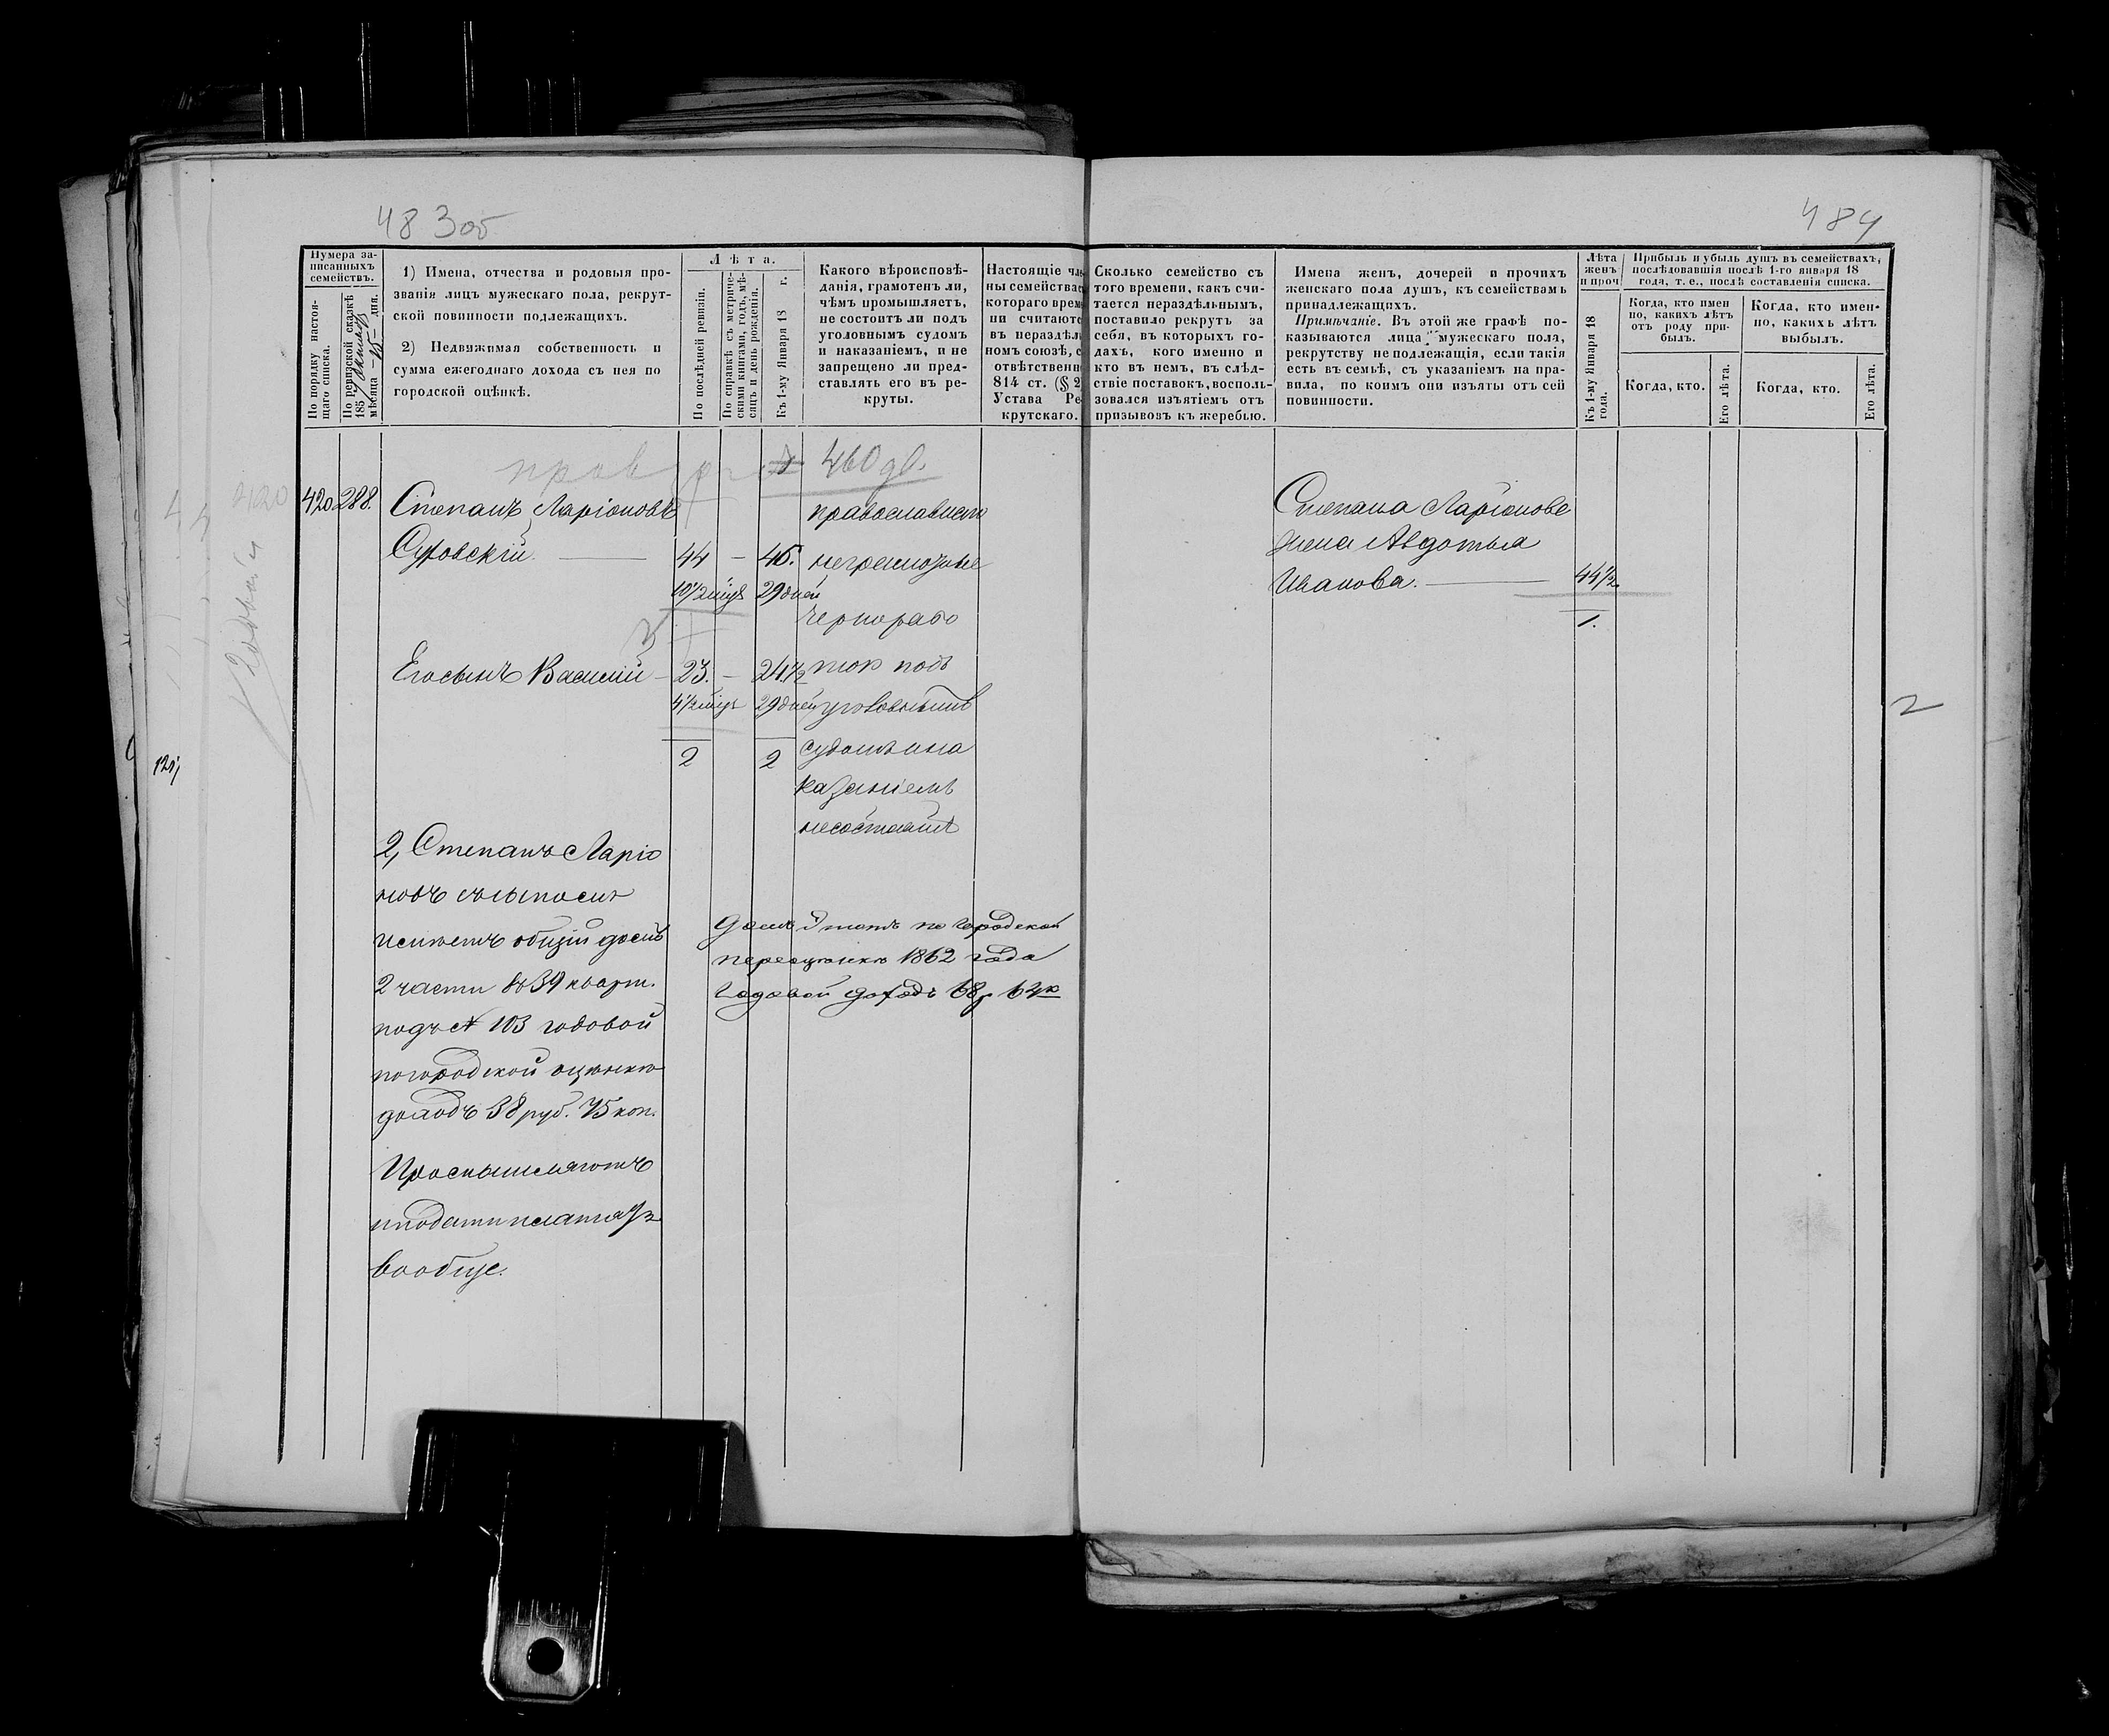 48 3об
484
Нумера за-
писанныхъ
семействъ.
По порядку настоя-
щаго списка.
По ревизской сказкѣ
185
мѣсяца 15 дня.
1) Имена, отчества и родовыя про-
званія лицъ мужескаго пола, рекрут-
ской повинности подлежащихъ.
2) Недвижимая собственность и
сумма ежегоднаго дохода съ нея по
городской оцѣнкѣ.
Лѣта.
По послѣдней ревизіи.
По справкѣ съ метриче-
скими книгами, годъ, мѣ-
сяцъ и день рожденія.
Къ 1-му Января 18 г.
Какого вѣроисповѣ-
данія, грамотенъ ли,
чѣмъ промышляетъ,
не состоитъ ли подъ
уголовнымъ судомъ
и наказаніемъ, и не
запрещено ли пред-
ставлять его въ ре-
круты.
Настоящіе чле
ны семейства с
котораго врем
ни считаютс
въ нераздѣл
номъ союзѣ, с
отвѣтственн
814 ст. (§ 2
Устава Ре
крутскаго.
Сколько семейство съ
того времени, какъ счи-
тается нераздѣльнымъ,
поставило рекрутъ за
себя, въ которыхъ го-
дахъ, кого именно и
кто въ немъ, въ слѣд-
ствіе поставокъ, восполь-
зовался изъятіемъ отъ
призывовъ къ жеребью.
Имена женъ, дочерей и прочихъ
женскаго пола душъ, къ семействамъ
принадлежащихъ.
Примѣчаніе. Въ этой же графѣ по-
казываются лица мужескаго пола,
рекрутству не подлежащія, если такія
есть въ семьѣ, съ указаніемъ на пра-
вила, по коимъ они изъяты отъ сей
повинности.
Лѣта
женъ
и проч
Къ 1-му Января 18
года.
Прибыль и убыль душъ въ семействахъ,
послѣдовавшія послѣ 1-го января 18
года, т. е., послѣ составленія списка.
Когда, кто имен
но, какихъ лѣтъ
отъ роду при-
былъ.
Когда, кто имен-
но, какихъ лѣтъ
выбылъ.
Когда, кто.
Его лѣта.
Когда, кто.
Его лѣта.
460
420
420 288. Степанъ Ларіоновъ
православнаго
Суровскій. 44 — 46. неграмотные
10½ мѣс 29 дней
чернорабо
Его сынъ Василій — 23. — 24½ тою подъ
4½ мѣс 29 дней уголовнымъ
2 2 судомъ и на
казаніемъ
несостоитъ
2, Степанъ Ларіо
новъ съ сыномъ
имѣетъ общій домъ
2 части въ 39 кварт.
подъ № 103 годовой
по городской оцѣнкѣ
доходъ 38 руб. 75 коп.
Промышляютъ
и подати платятъ
вообще.
Домъ этотъ по городской
переоцѣнкѣ 1862 года
годовой доходъ 68 р 64 к
Степана Ларіонова
жена Авдотья
Иванова. — 44½
1.
2